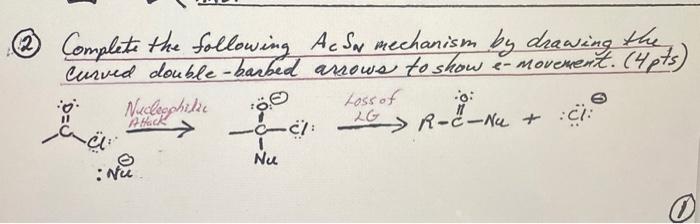 ② Complete the following AcSN mechanism by drawing the
curved double-barbed arrows to show e- movement. (4pts)
:O: Nucleophilic :O: ⊖ Loss of :O: ⊖
Attack LG
C C–Cl: R–C–Nu + :Cl:
Cl:
⊖ Nu
:Nu
①